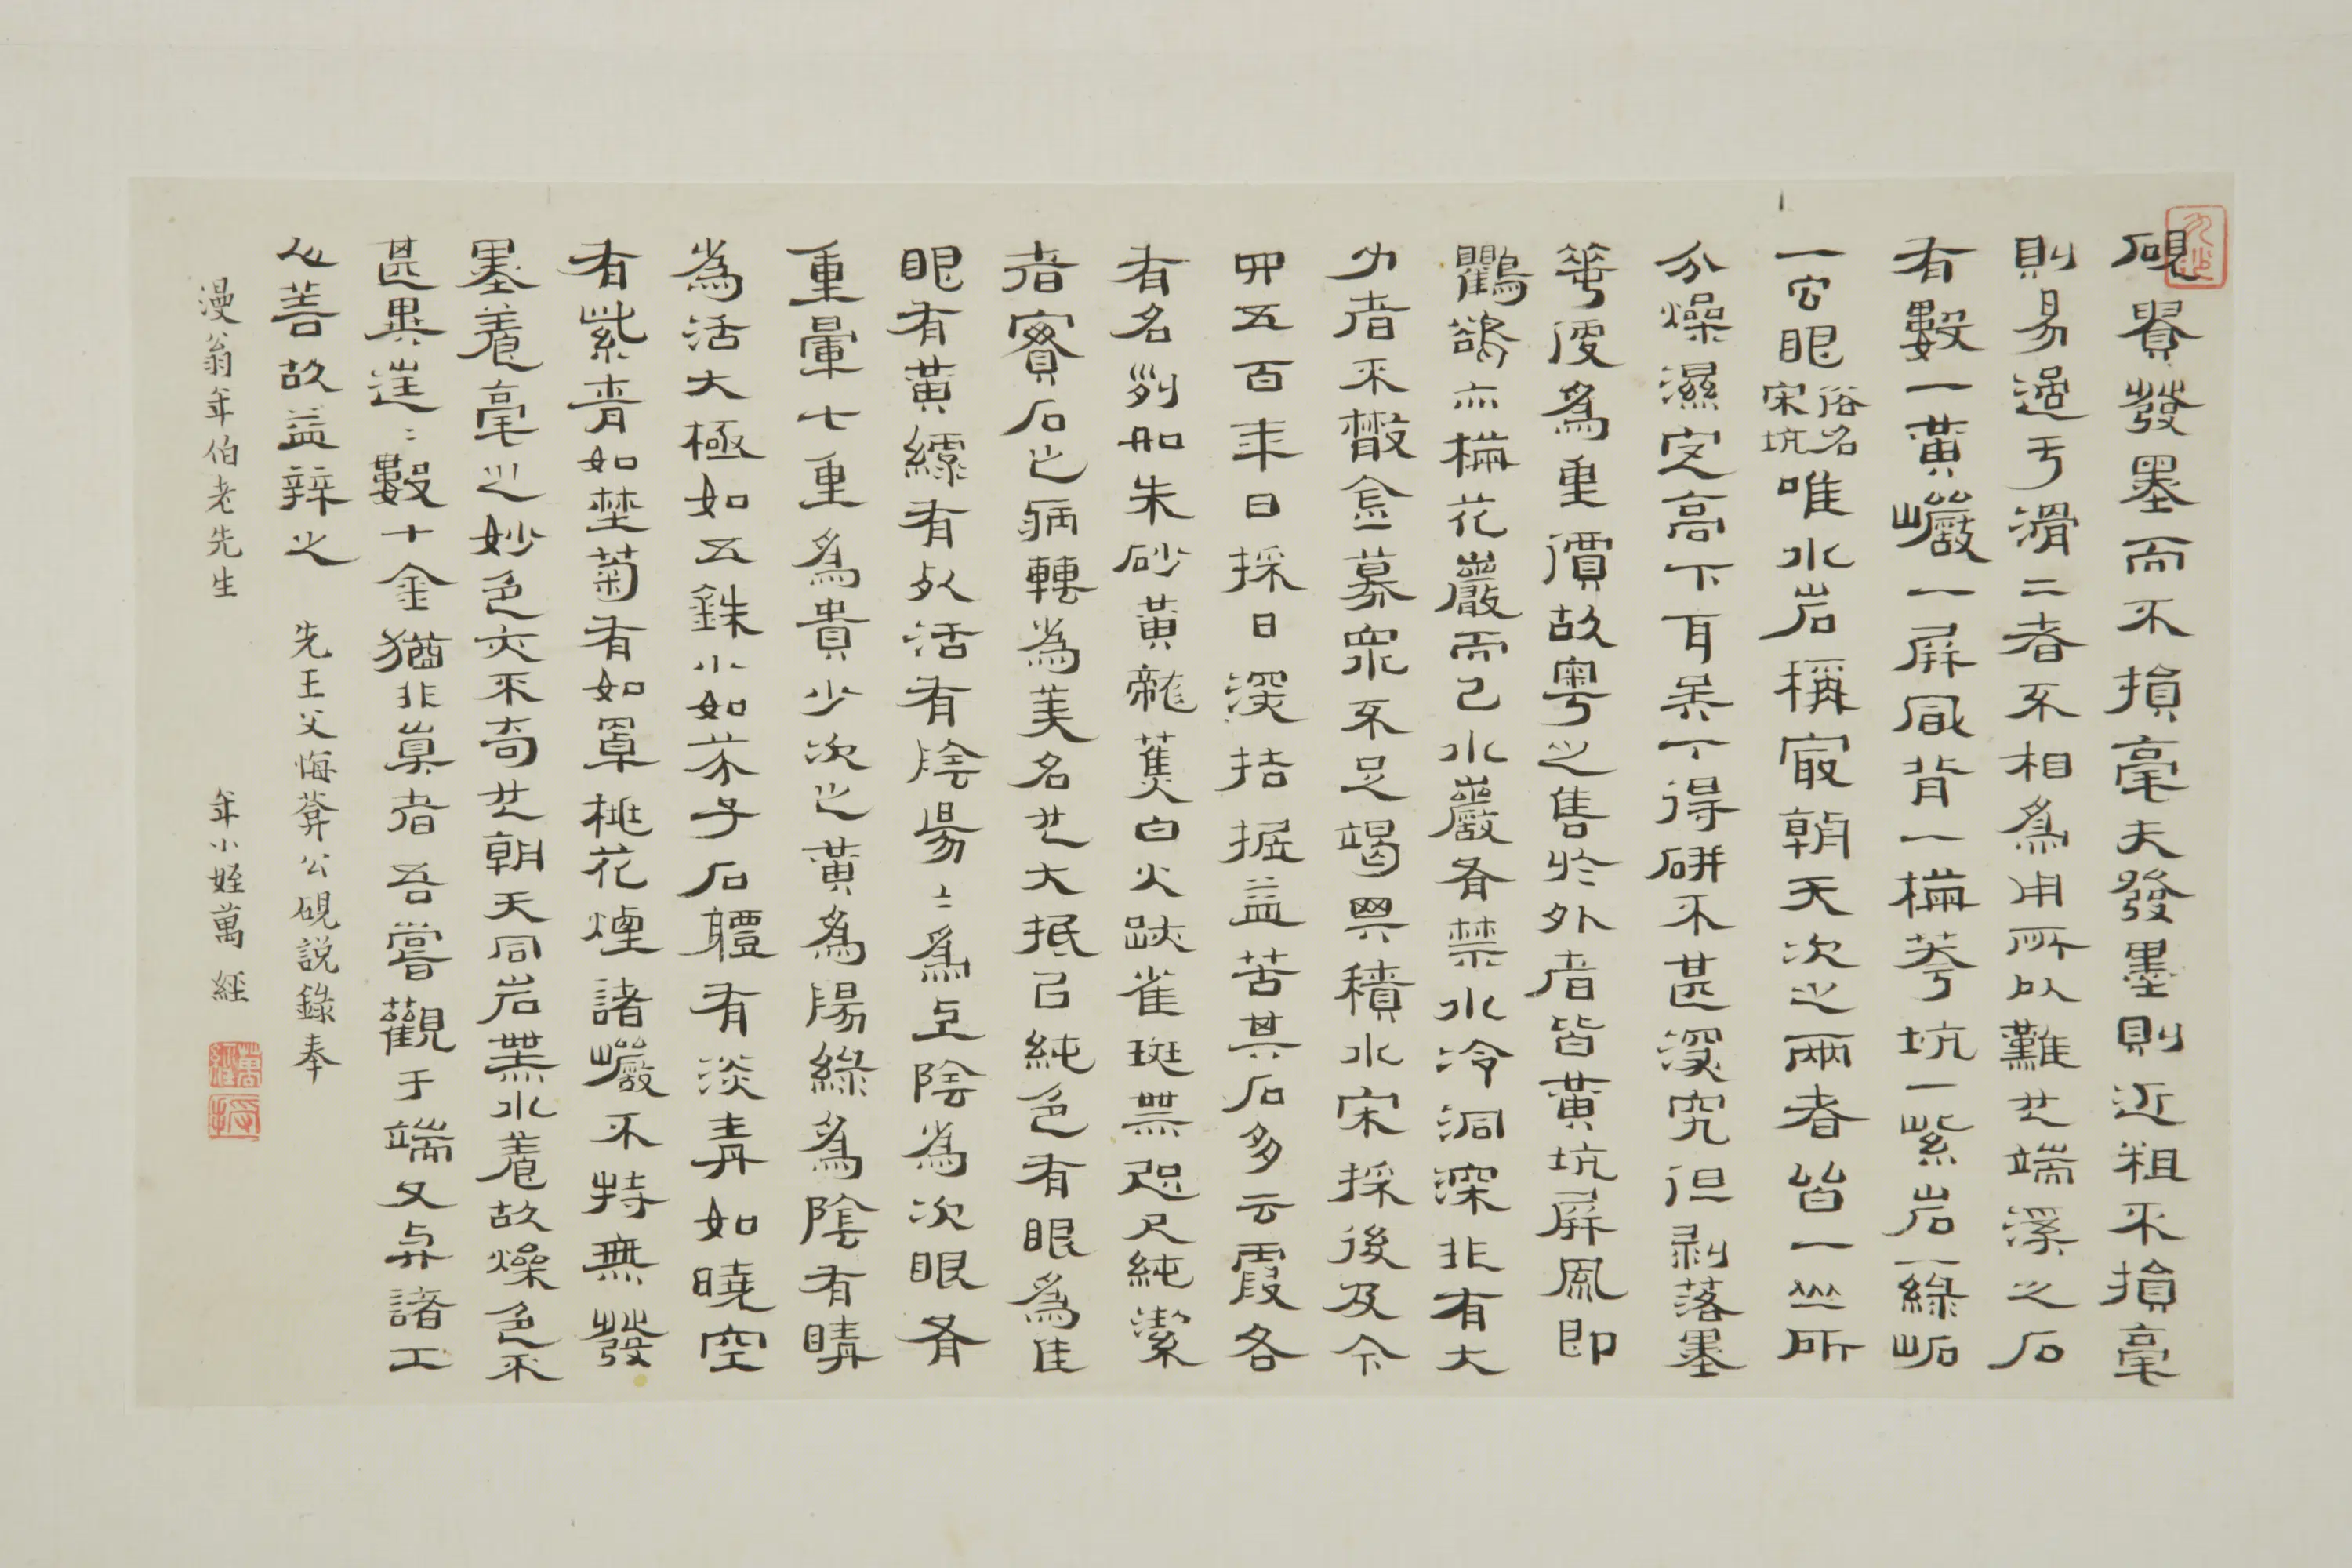 硯貴發墨而不損毫夫發墨則近粗不損毫
則易過于滑二者不相為用所以難也端溪之石
有數一黃巖一屏風背一梅花坑一紫岩一綠
一宮眼俗名宋坑唯水岩稱寂朝天次之兩者皆一山所
分燥濕定高下耳吳下得研不甚深究但剥落墨
等度為重價故粵之售於外者皆黃坑屏風即
鸜鵒亦梅花巖而已水巖有禁水冷洞深非有大
力者不敢僉募衆不足竭其積水宋採後及今
四五百年日採日深拮掘益苦其石多云霞各
有名列如朱砂黃龍蕉白火跡雀斑無咫尺純潔
者實石之病轉為美名也大抵以純色有眼為佳
眼有黃縹有死活有陰陽陽為上陰為次眼有
重暈七重為貴少次之黃為陽綠為陰有睛
為活大極如五銖小如芥子石體有淡青如曉空
有紫青如埜菊有如罩桃花煙諸巖不特無發
墨養毫之妙色亦不奇也朝天同岩無水養故燥色不
甚異往往數十金猶非真者吾嘗觀于端又與諸工
人善故益辨之 先王父悔菴公硯說錄奉
漫翁年伯老先生 年小姪萬經
萬經